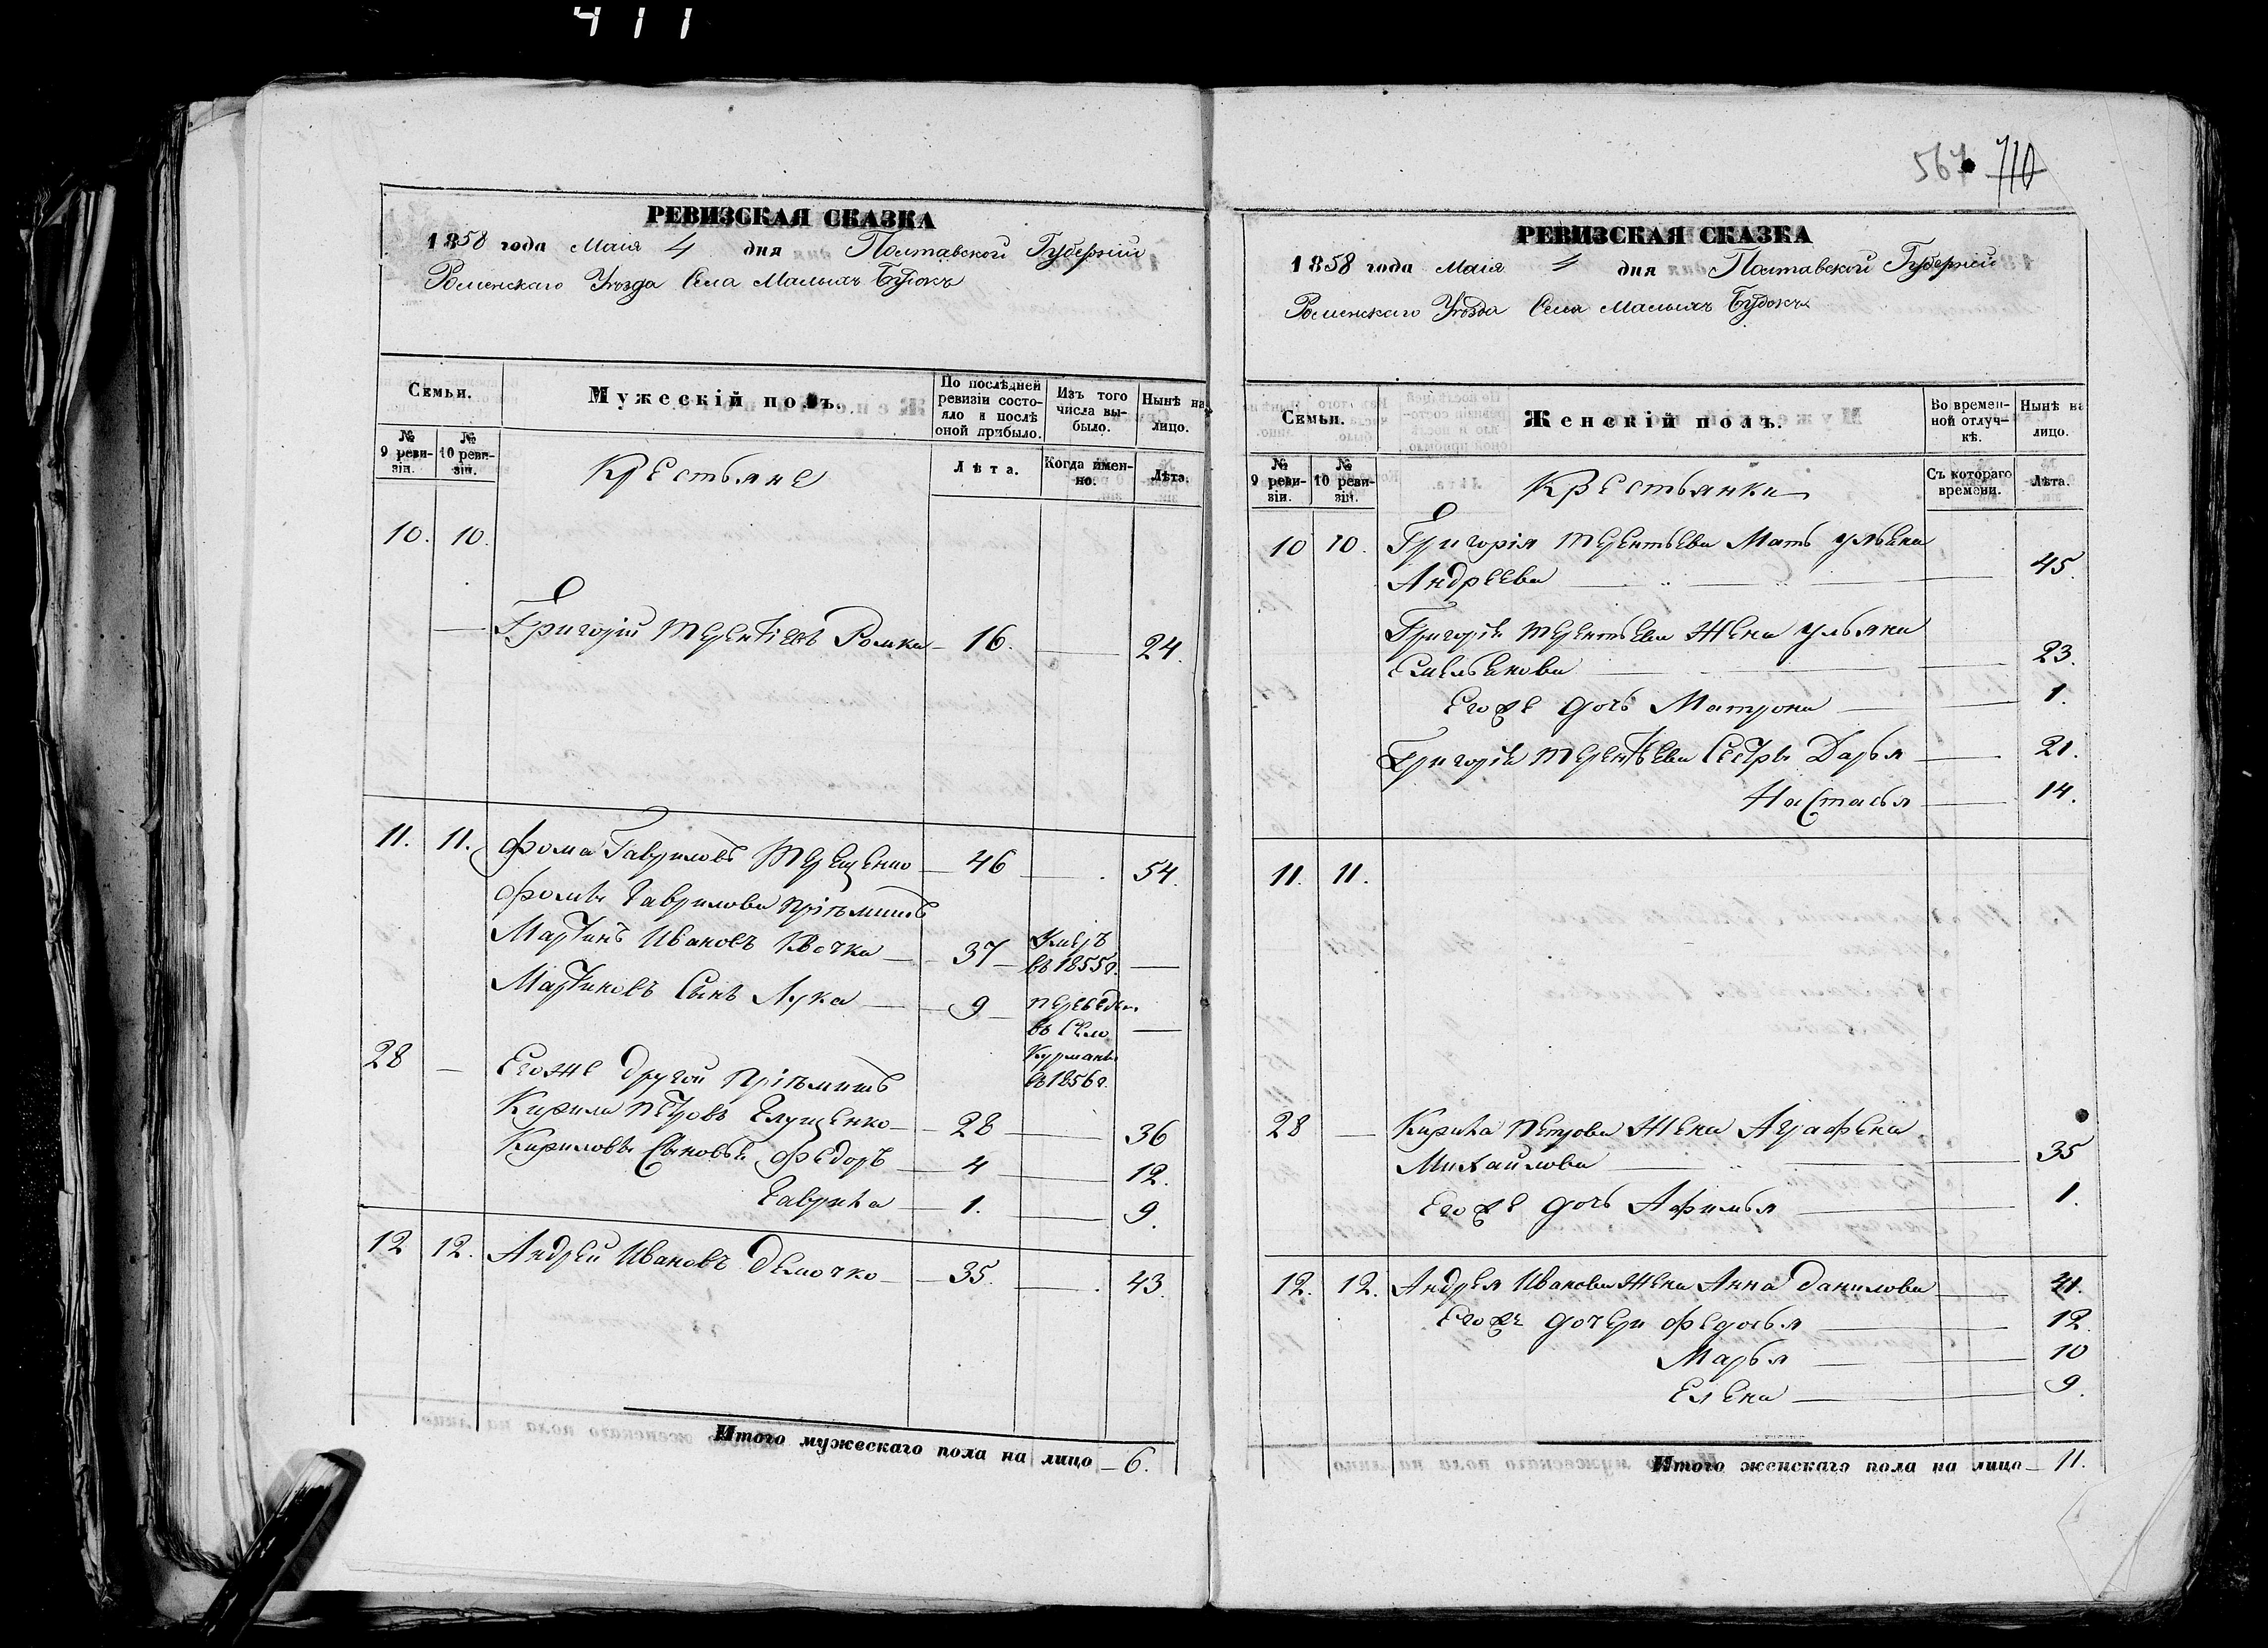 411
РЕВИЗСКАЯ СКАЗКА
1858 года Маія 4 дня Полтавской Губерніи
Роменскаго Уѣзда Села Малыхъ Будокъ
Семьи.
Мужескій полъ.
По послѣдней ревизіи состояло и послѣ оной прибыло.
Изъ того числа выбыло.
Нынѣ на лицо.
№ 9 ревизіи.
№ 10 ревизіи.
Крестьяне
Лѣта.
Когда именно.
Лѣта.
10. 10.
Григорій Терентіевъ Ромка 16. 24.
11. 11. Фома Гавриловъ Терещенко 46 54.
Фомы Гаврилова пріемышъ
Мартинъ Ивановъ Квочка 37 Умеръ въ 1855г.
Мартиновъ Сынъ Лука 9 переведен. въ Село Курманы въ 1856г.
28 Егоже другой пріемышъ
Кирила Петровъ Глущенко 28 36
Кириловы Сыновья Федоръ 4 12.
Гаврила 1. 9.
12 12. Андрей Ивановъ Демочко 35. 43.
Итого мужескаго пола на лицо 6.
567 710
РЕВИЗСКАЯ СКАЗКА
1858 года Маія 4 дня Полтавской Губерніи
Роменскаго Уѣзда Села Малыхъ Будокъ
Семьи.
Женскій полъ.
Во временной отлучкѣ.
Нынѣ на лицо.
№ 9 ревизіи.
№ 10 ревизіи.
Крестьянки
Съ котораго времени.
Лѣта.
10 10. Григорія Терентьева Мать Ульяна
Андреева 45.
Григорія Терентьева Жена Ульяна
Емельянова 23.
Егоже дочь Матрона 1.
Григорія Терентьева Сестры Дарья 21.
Настасья 14.
11. 11.
28 Кирила Петрова Жена Агафена
Михайлова 35
Егоже дочь Афимья 1.
12. 12. Андрея Иванова Жена Анна Данилова 41.
Егоже дочери Федосья 12.
Марья 10
Елена 9.
Итого женскаго пола на лицо 11.